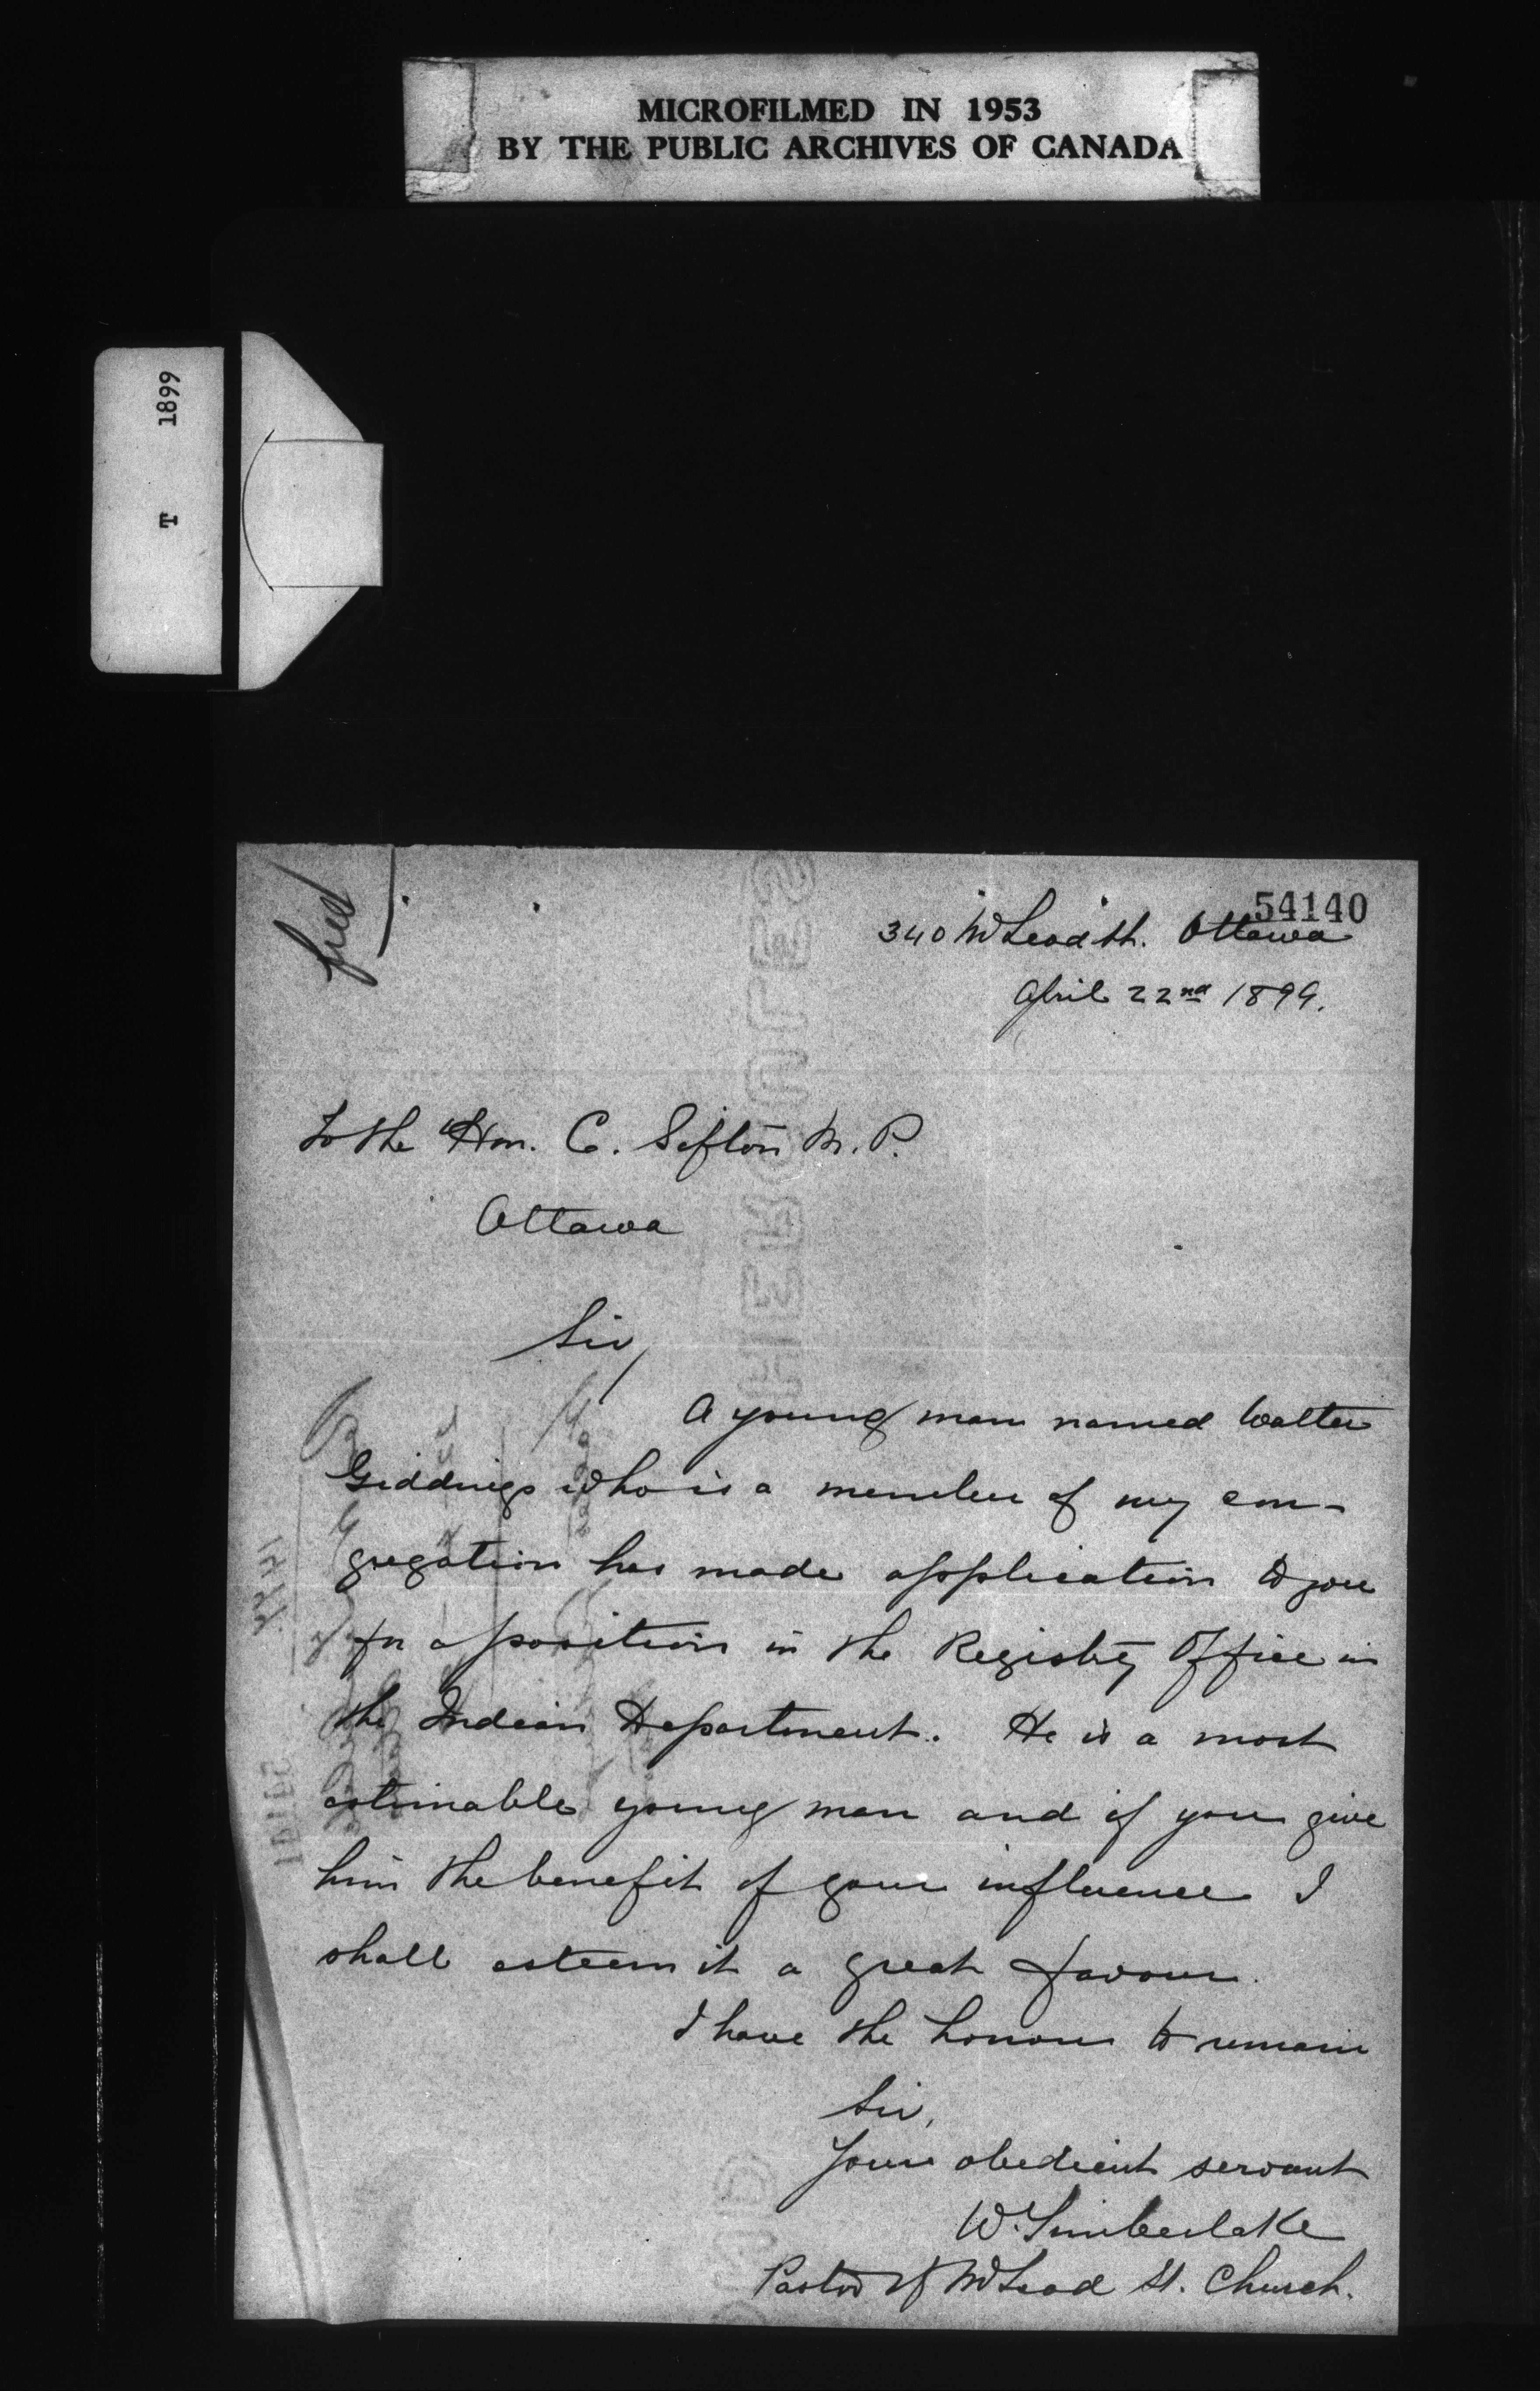 MICROFILMED IN 1953
BY THE PUBLIC ARCHIVES OF CANADA
T 1899
54140
340 McLeod St. Ottawa
April 22nd 1899.
To the Hon. C. Sifton M. P.
Ottawa
Sir,
A young man named Walter
Giddings who is a member of my con-
gregation has made application to you
for a position in the Registry Office in
the Indian Department. He is a most
estimable young man and if you give
him the benefit of your influence I
shall esteem it a great favour.
I have the honour to remain
Sir,
Your obedient servant
W. Timberlake
Pastor of McLeod St. Church.